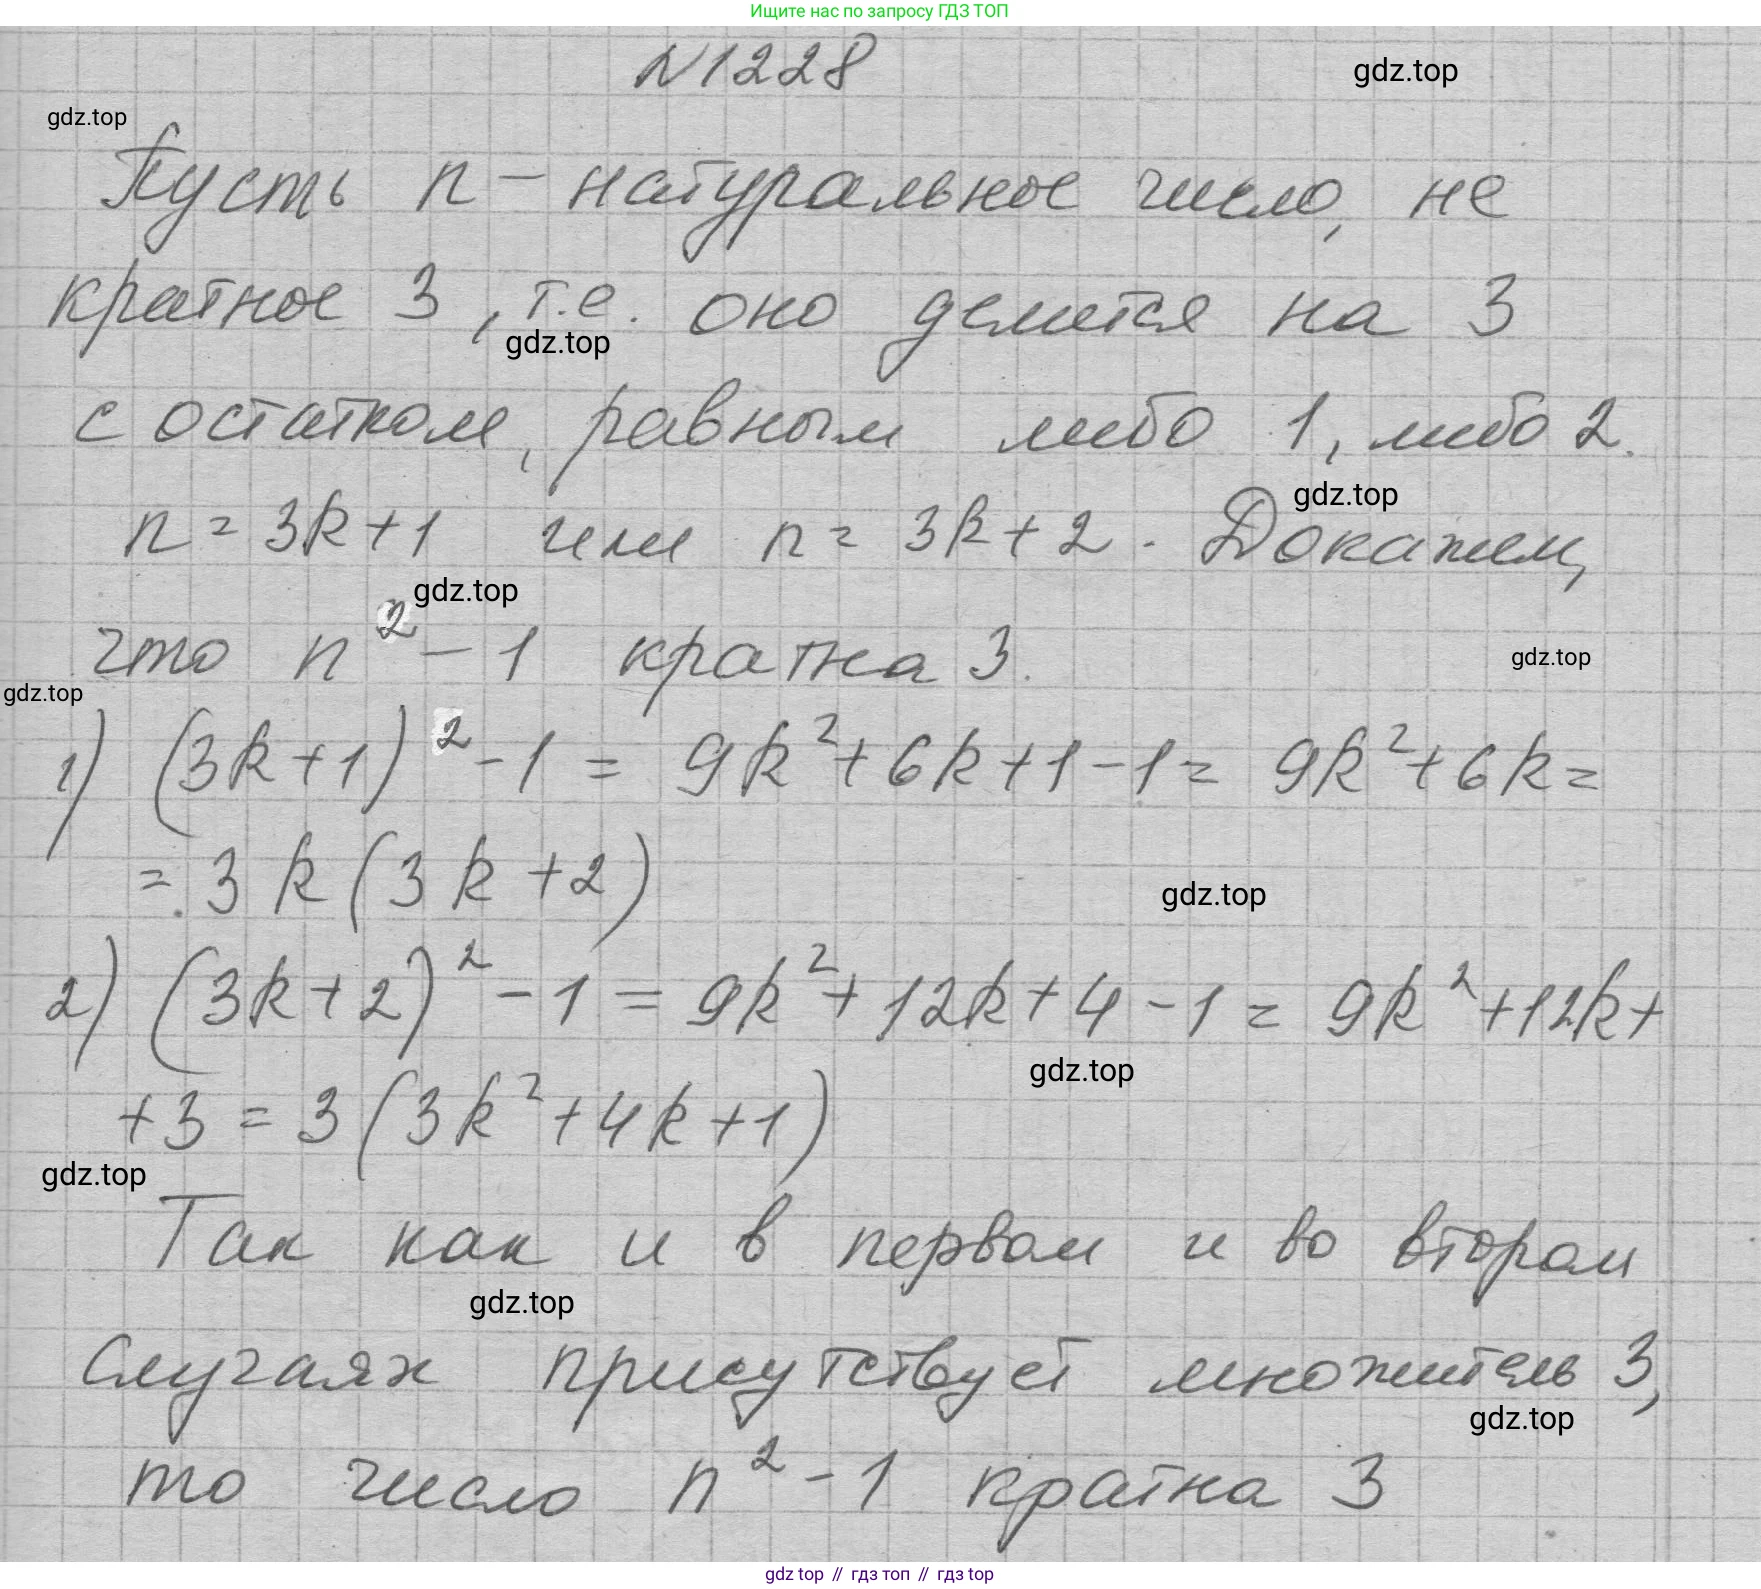 Ищите нас по запросу ГДЗ ТОП
N1228
gdz.top
gdz.top
Пусть n – натуральное число, не
кратное 3, т.е. оно делится на 3
gdz.top
с остатком, равным либо 1, либо 2.
gdz.top
n = 3k+1 или n = 3k+2. Докажем,
gdz.top
что n² – 1 кратна 3.
gdz.top
gdz.top
1) (3k+1)² - 1 = 9k² + 6k + 1 - 1 = 9k² + 6k =
= 3k(3k+2)
gdz.top
2) (3k+2)² - 1 = 9k² + 12k + 4 - 1 = 9k² + 12k +
gdz.top
+3 = 3(3k² + 4k + 1)
gdz.top
Так как и в первом и во втором
gdz.top
случаях присутствует множитель 3,
gdz.top
то число n² - 1 кратна 3
gdz top // гдз топ // гдз top